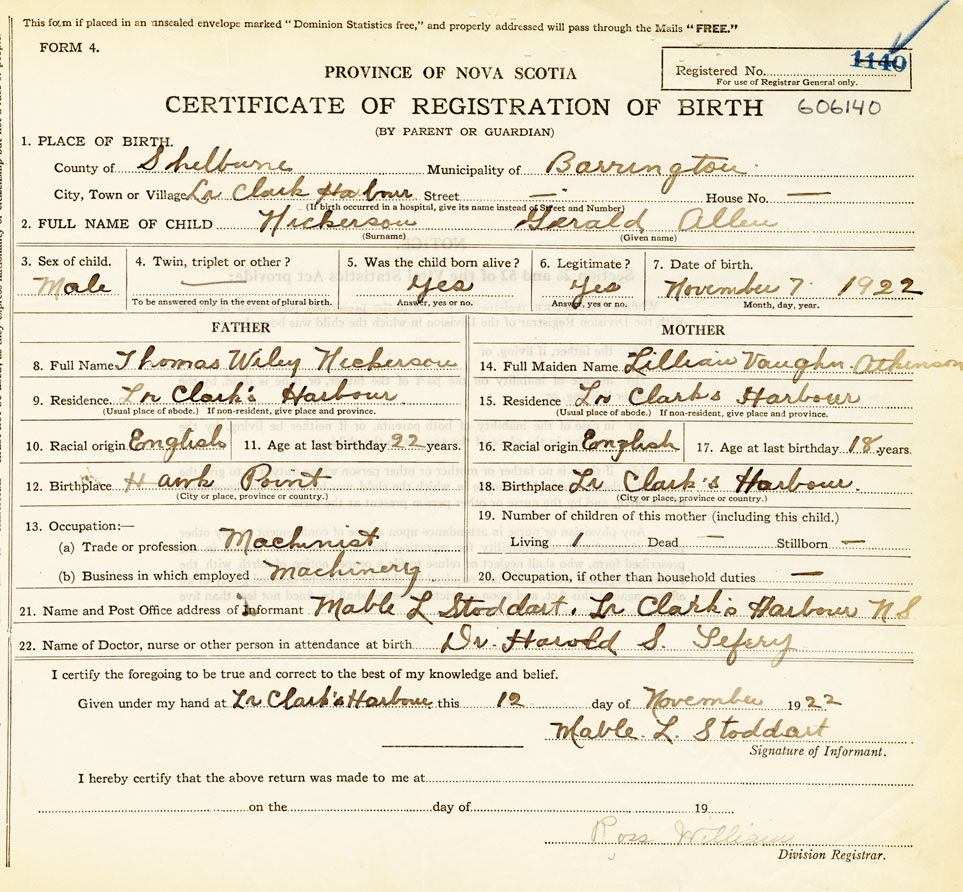 This form if placed in an unsealed envelope marked "Dominion Statistics free," and properly addressed will pass through the Mails "FREE."
FORM 4.
1140
Registered No.
For use of Registrar General only.
PROVINCE OF NOVA SCOTIA
CERTIFICATE OF REGISTRATION OF BIRTH 606140
(BY PARENT OR GUARDIAN)
1. PLACE OF BIRTH.
County of Shelburne Municipality of Barrington
City, Town or Village Lr Clark Harbour Street — House No. —
(If birth occurred in a hospital, give its name instead of Street and Number)
2. FULL NAME OF CHILD Nickerson Gerald Allen
(Surname) (Given name)
3. Sex of child. 4. Twin, triplet or other? 5. Was the child born alive? 6. Legitimate? 7. Date of birth.
Male — Yes Yes November 7 1922
To be answered only in the event of plural birth. Answer, yes or no. Answer, yes or no. Month, day, year.
FATHER MOTHER
8. Full Name Thomas Wiley Nickerson 14. Full Maiden Name Lillian Vaughn Atkinson
9. Residence Lr Clark's Harbour 15. Residence Lr Clark's Harbour
(Usual place of abode.) If non-resident, give place and province. (Usual place of abode.) If non-resident, give place and province.
10. Racial origin English 11. Age at last birthday 22 years. 16. Racial origin English 17. Age at last birthday 18 years.
12. Birthplace Hawk Point 18. Birthplace Lr Clark's Harbour.
(City or place, province or country.) (City or place, province or country.)
13. Occupation:— 19. Number of children of this mother (including this child.)
(a) Trade or profession Machinist Living 1 Dead — Stillborn —
(b) Business in which employed Machinery 20. Occupation, if other than household duties —
21. Name and Post Office address of Informant Mable L Stoddart, Lr Clark's Harbour N.S.
22. Name of Doctor, nurse or other person in attendance at birth Dr. Harold S.
I certify the foregoing to be true and correct to the best of my knowledge and belief.
Given under my hand at Lr Clark's Harbour this 12 day of November 1922
Mable. L. Stoddart
Signature of Informant.
I hereby certify that the above return was made to me at
on the day of 19
Ross William
Division Registrar.